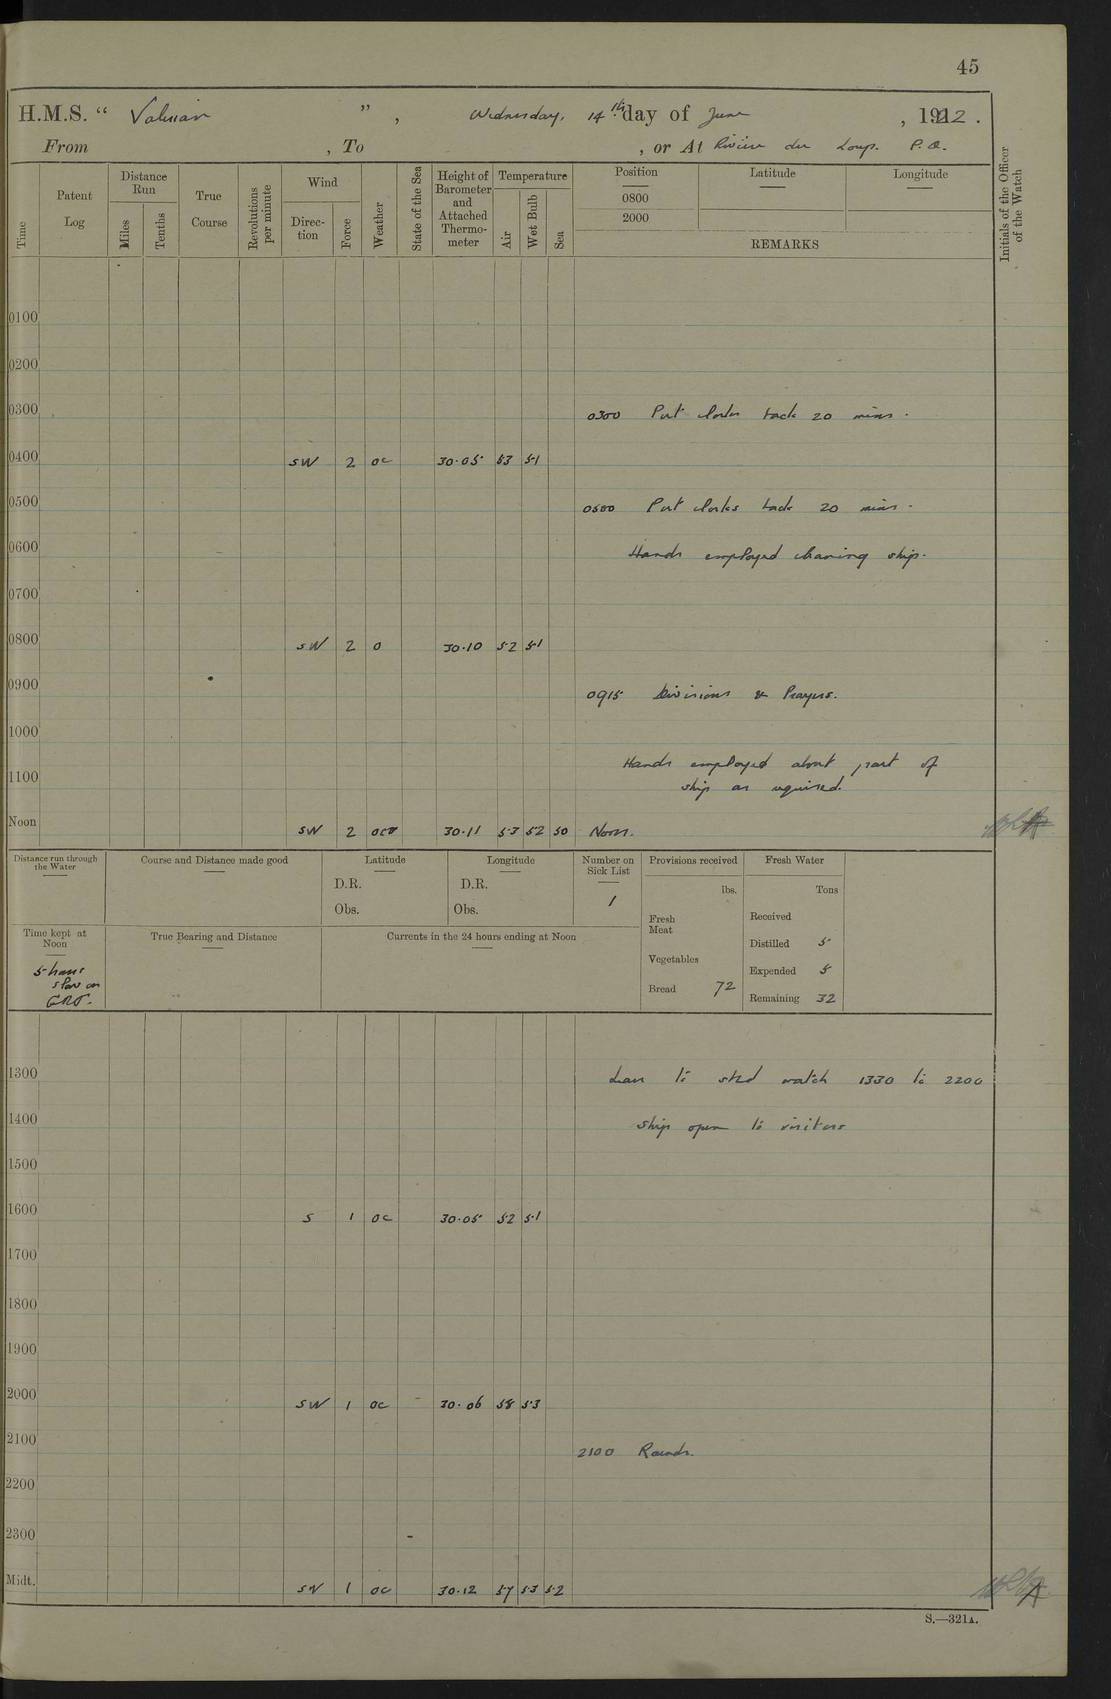 45
H.M.S. “ Valerian ” , Wednesday, 14th day of June , 1922 .
From , To , or At Rivière du Loup. P.Q.
Time
Patent Log
Distance Run
Miles
Tenths
True Course
Revolutions per minute
Wind
Direction
Force
Weather
State of the Sea
Height of Barometer and Attached Thermometer
Temperature
Air
Wet Bulb
Sea
Position
0800
2000
Latitude
Longitude
REMARKS
Initials of the Officer of the Watch
0100
0200
0300 0300 Put clocks back 20 mins.
0400 SW 2 oc 30.05 53 51
0500 0500 Put clocks back 20 mins.
0600 Hands employed cleaning ship.
0700
0800 SW 2 o 30.10 52 51
0900 0915 Divisions & Prayers.
1000
Hands employed about part of
1100 ship as required.
Noon SW 2 30.11 53 52 50 Noon.
Distance run through the Water
Course and Distance made good
Latitude
D.R.
Obs.
Longitude
D.R.
Obs.
Number on Sick List
1
Provisions received
lbs.
Fresh Meat
Vegetables
Bread 72
Fresh Water
Tons
Received
Distilled 5
Expended 5
Remaining 32
Time kept at Noon
5 hours
slow on
G.M.T.
True Bearing and Distance
Currents in the 24 hours ending at Noon
1300 Leave to stbd watch 1330 to 2200
1400 Ship open to visitors
1500
1600 S 1 oc 30.05 52 51
1700
1800
1900
2000 SW 1 oc 30.06 58 53
2100 2100 Rounds.
2200
2300
Midt. SW 1 oc 30.12 57 53 52
S.—321A.